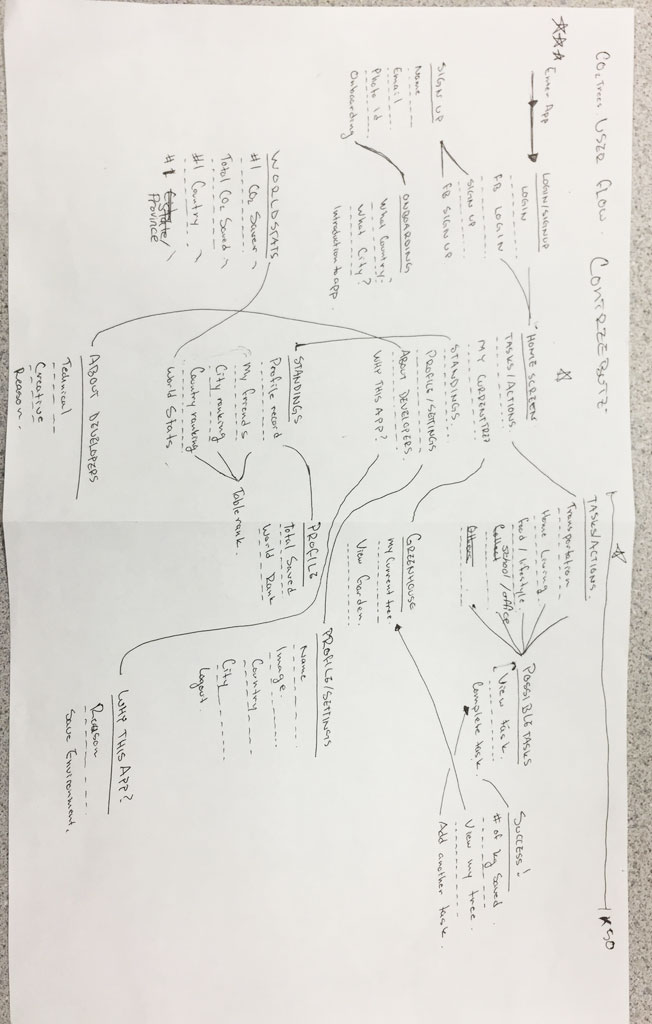 CO2 Trees USER FLOW
Enter App
LOGIN/SIGNUP
LOGIN
FB LOGIN
SIGN UP
FB SIGN UP
SIGN UP
Name
Email
Photo id
Onboarding
ONBOARDING
What Country?
What City?
Introduction to app.
HOME SCREEN
TASKS/ACTIONS
MY CURRENT TREE
STANDINGS
PROFILE/SETTINGS
ABOUT DEVELOPERS
WHY THIS APP?
TASKS/ACTIONS.
Transportation
Home Living.
Food/lifestyle.
School/office
Collect
Others
POSSIBLE TASKS
View task.
Complete task.
SUCCESS!
# of kg saved.
View my tree.
Add another task.
GREENHOUSE
my current tree.
View Garden.
STANDINGS
Profile record
My friends
City ranking
Country ranking
World Stats.
Table rank.
PROFILE
Total Saved
World Rank
WORLD STATS
#1 CO2 Saver
Total CO2 Saved
#1 Country
#1 State/
Province
PROFILE/SETTINGS
Name
Image.
Country
City
Logout.
ABOUT DEVELOPERS
Technical
Creative
Reason.
WHY THIS APP?
Reason
Save Environment.